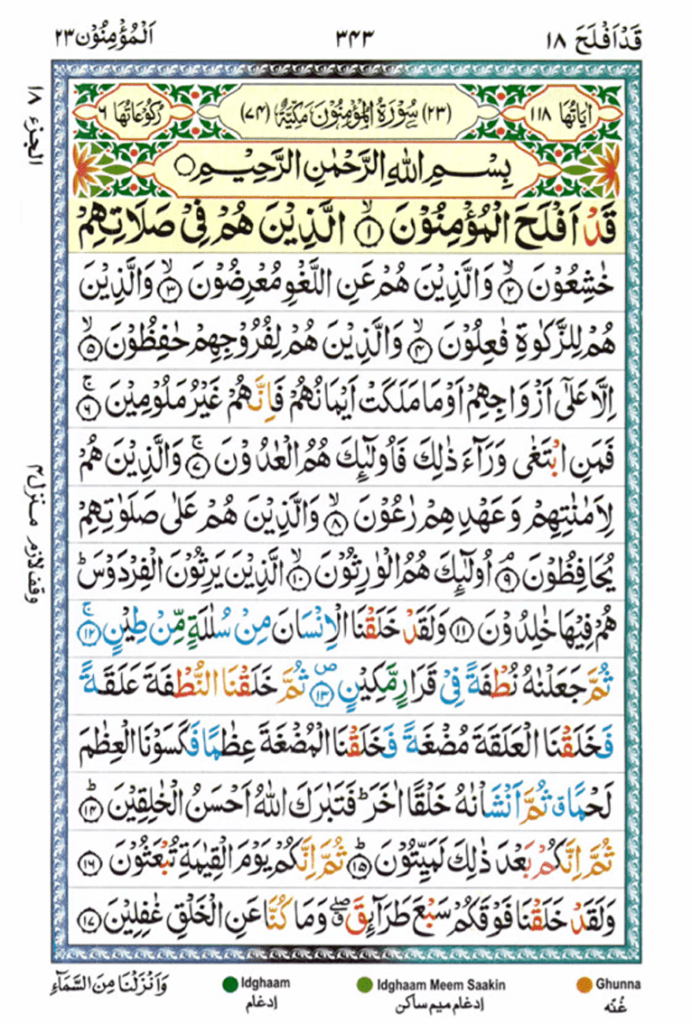 قَدْ اَفْلَحَ ١٨
٣٤٣
اَلْمُؤْمِنُوْن ٢٣
اٰیَاتُهَا ١١٨
(٢٣) سُوْرَةُ الْمُؤْمِنُوْنَ مَكِّیَّةٌ (٧٤)
رُكُوْعَاتُهَا ٦
بِسْمِ اللّٰهِ الرَّحْمٰنِ الرَّحِیْمِ
قَدْ اَفْلَحَ الْمُؤْمِنُوْنَ ۙ﴿١﴾ الَّذِیْنَ هُمْ فِیْ صَلَاتِهِمْ
خٰشِعُوْنَ ۙ﴿٢﴾ وَالَّذِیْنَ هُمْ عَنِ اللَّغْوِ مُعْرِضُوْنَ ۙ﴿٣﴾ وَالَّذِیْنَ
هُمْ لِلزَّكٰوةِ فٰعِلُوْنَ ۙ﴿٤﴾ وَالَّذِیْنَ هُمْ لِفُرُوْجِهِمْ حٰفِظُوْنَ ۙ﴿٥﴾
اِلَّا عَلٰۤی اَزْوَاجِهِمْ اَوْ مَا مَلَكَتْ اَیْمَانُهُمْ فَاِنَّهُمْ غَیْرُ مَلُوْمِیْنَ ۚ﴿٦﴾
فَمَنِ ابْتَغٰی وَرَآءَ ذٰلِكَ فَاُولٰٓئِكَ هُمُ الْعٰدُوْنَ ۚ﴿٧﴾ وَالَّذِیْنَ هُمْ
لِاَمٰنٰتِهِمْ وَعَهْدِهِمْ رٰعُوْنَ ۙ﴿٨﴾ وَالَّذِیْنَ هُمْ عَلٰی صَلَوٰتِهِمْ
یُحَافِظُوْنَ ۘ﴿٩﴾ اُولٰٓئِكَ هُمُ الْوٰرِثُوْنَ ۙ﴿١٠﴾ الَّذِیْنَ یَرِثُوْنَ الْفِرْدَوْسَ ؕ
هُمْ فِیْهَا خٰلِدُوْنَ ﴿١١﴾ وَلَقَدْ خَلَقْنَا الْاِنْسَانَ مِنْ سُلٰلَةٍ مِّنْ طِیْنٍ ۚ﴿١٢﴾
ثُمَّ جَعَلْنٰهُ نُطْفَةً فِیْ قَرَارٍ مَّكِیْنٍ ۪﴿١٣﴾ ثُمَّ خَلَقْنَا النُّطْفَةَ عَلَقَةً
فَخَلَقْنَا الْعَلَقَةَ مُضْغَةً فَخَلَقْنَا الْمُضْغَةَ عِظٰمًا فَكَسَوْنَا الْعِظٰمَ
لَحْمًا ٭ ثُمَّ اَنْشَاْنٰهُ خَلْقًا اٰخَرَ ؕ فَتَبٰرَكَ اللّٰهُ اَحْسَنُ الْخٰلِقِیْنَ ؕ﴿١٤﴾
ثُمَّ اِنَّكُمْ بَعْدَ ذٰلِكَ لَمَیِّتُوْنَ ؕ﴿١٥﴾ ثُمَّ اِنَّكُمْ یَوْمَ الْقِیٰمَةِ تُبْعَثُوْنَ ﴿١٦﴾
وَلَقَدْ خَلَقْنَا فَوْقَكُمْ سَبْعَ طَرَآئِقَ ۖ٭ وَمَا كُنَّا عَنِ الْخَلْقِ غٰفِلِیْنَ ﴿١٧﴾
الجزء ١٨
منزل ٤
وقف لازم
وَاَنْزَلْنَا مِنَ السَّمَآءِ
Idghaam
ادغام
Idghaam Meem Saakin
ادغام میم ساکن
Ghunna
غُنّه